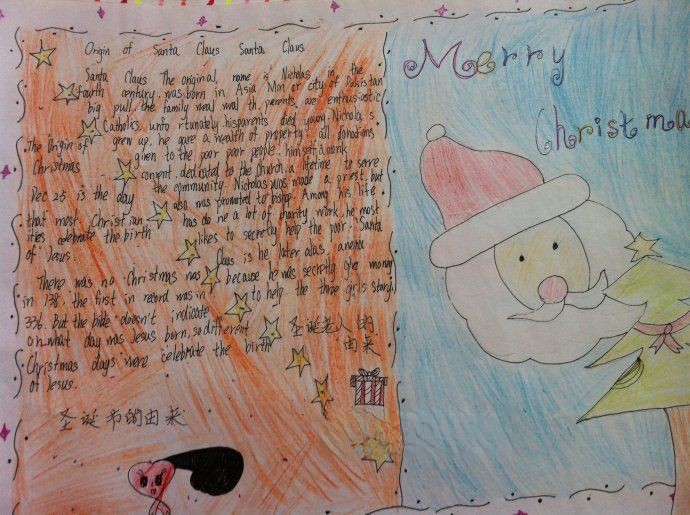 Origin of Santa Claus Santa Claus
Santa Claus The original name is Nicholas in the
fourth century was born in Asia Mon or city of Pakistan
big pull the family meal th parents are enthusiastic
Catholics, unfo rtunately hisparents died young Nichola s
grew up, he gave a wealth of property all donations
given to the poor poor people. himself a monk
consent. dedicated to the church, a lifetime to serve
the community. Nicholas was made a priest, but
also was promoted to bishop. Among his life
has do ne a lot of charity work, he most
likes to secretly help the poor. Santa
Claus is he later alias
because he was secretly give money
to help the three girls story.
圣诞老人的
由来
The Origin of
Christmas
Dec 25 is the day
that most Christian
ities celebrate the birth
of Jesus.
There was no Christmas was
in 138, the first in record was in
336. But the bible doesn't indicate
on what day was Jesus born, so different
Christmas days were celebrate the birth
of Jesus.
圣诞节的由来
Merry
Christma